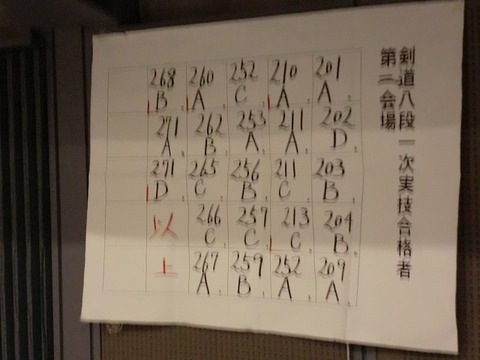 剣道八段一次実技合格者
第二会場
201
A
202
D
203
B
204
B
209
A
210
A
211
A
211
C
213
C
252
A
252
C
253
A
256
B
257
C
259
B
260
A
262
B
265
C
266
C
267
A
268
B
271
A
271
D
以
上